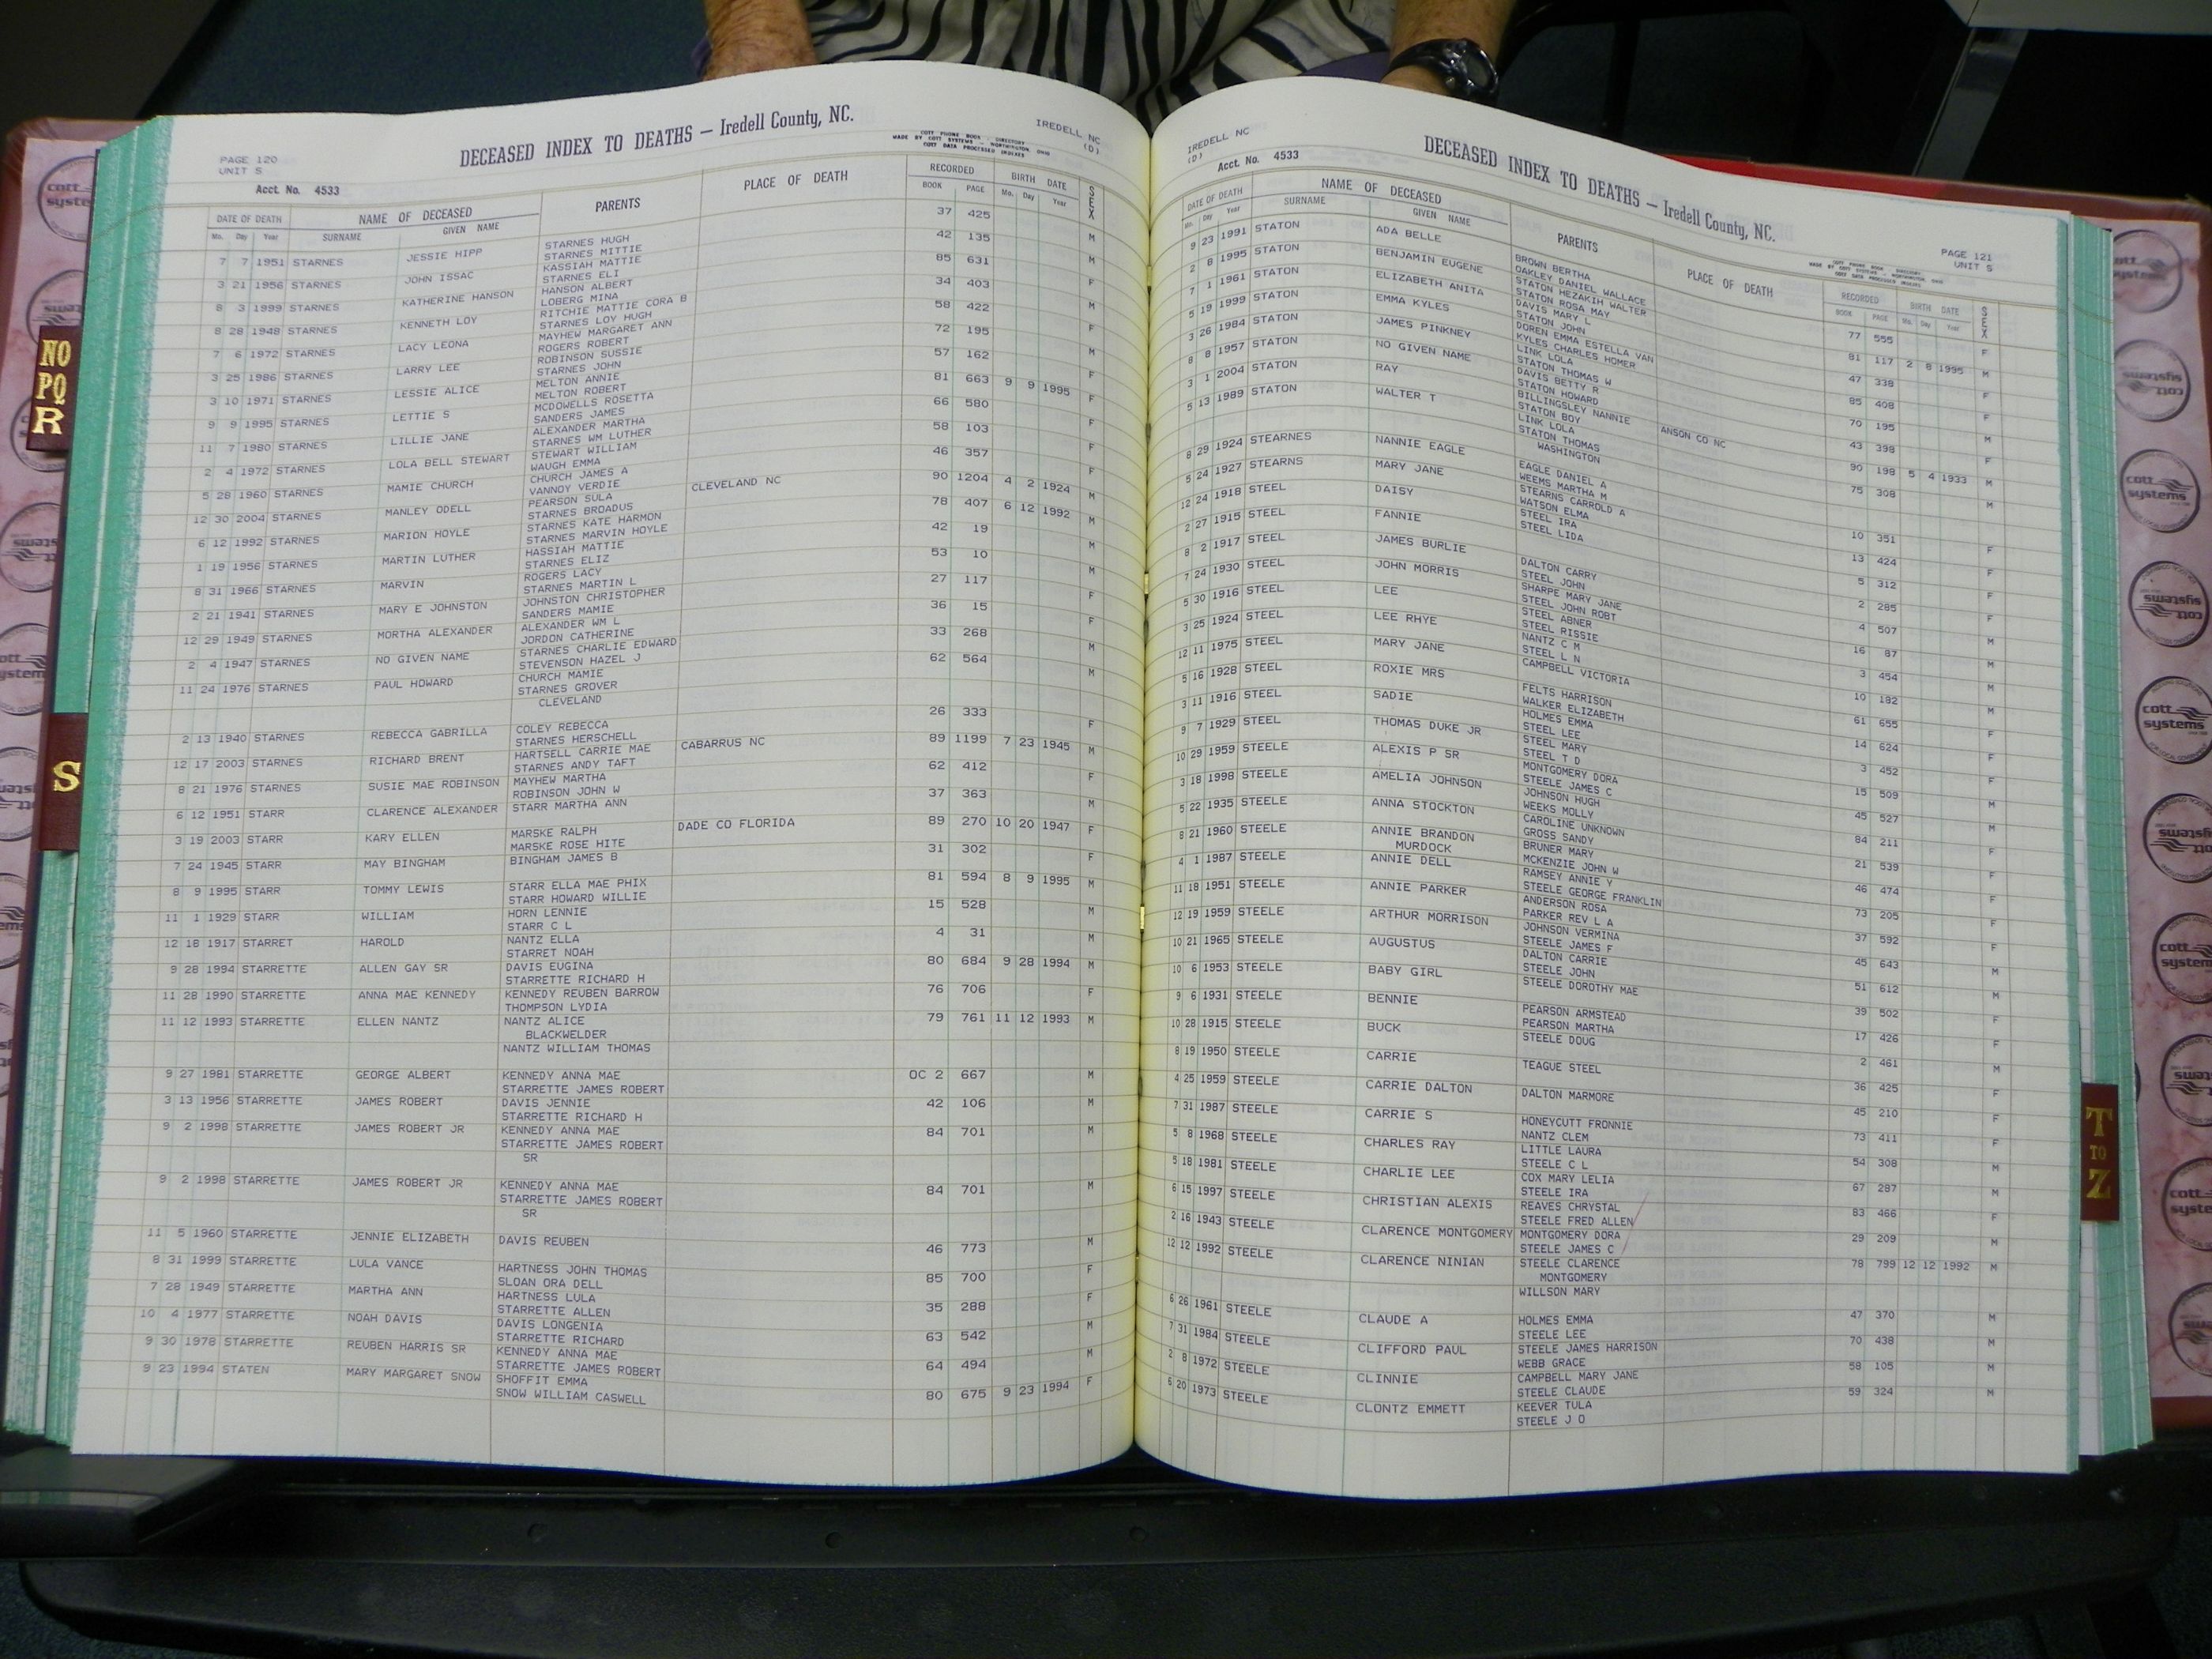 PAGE 120
UNIT S
DECEASED INDEX TO DEATHS — Iredell County, NC.
COTT PHONE BOOK - DIRECTORY
MADE BY COTT SYSTEMS - WORTHINGTON, OHIO
COTT DATA PROCESSED INDEXES
IREDELL NC
(D)
Acct. No. 4533
DATE OF DEATH NAME OF DECEASED PARENTS PLACE OF DEATH RECORDED BIRTH DATE SEX
Mo. Day Year SURNAME GIVEN NAME BOOK PAGE Mo. Day Year
7 7 1951 STARNES JESSIE HIPP STARNES HUGH 37 425 M
STARNES MITTIE
3 21 1956 STARNES JOHN ISSAC KASSIAH MATTIE 42 135 M
STARNES ELI
8 3 1999 STARNES KATHERINE HANSON HANSON ALBERT 85 631 F
LOBERG MINA
8 28 1948 STARNES KENNETH LOY RITCHIE MATTIE CORA B 34 403 M
STARNES LOY HUGH
7 6 1972 STARNES LACY LEONA MAYHEW MARGARET ANN 58 422 F
ROGERS ROBERT
3 25 1986 STARNES LARRY LEE ROBINSON SUSSIE 72 195 M
STARNES JOHN
3 10 1971 STARNES LESSIE ALICE MELTON ANNIE 57 162 F
MELTON ROBERT
9 9 1995 STARNES LETTIE S MCDOWELLS ROSETTA 81 663 9 9 1995 F
SANDERS JAMES
11 7 1980 STARNES LILLIE JANE ALEXANDER MARTHA 66 580 F
STARNES WM LUTHER
2 4 1972 STARNES LOLA BELL STEWART STEWART WILLIAM 58 103 F
WAUGH EMMA
5 28 1960 STARNES MAMIE CHURCH CHURCH JAMES A 46 357 F
VANNOY VERDIE
12 30 2004 STARNES MANLEY ODELL PEARSON SULA CLEVELAND NC 90 1204 4 2 1924 M
STARNES BROADUS
6 12 1992 STARNES MARION HOYLE STARNES KATE HARMON 78 407 6 12 1992 M
STARNES MARVIN HOYLE
1 19 1956 STARNES MARTIN LUTHER HASSIAH MATTIE 42 19 M
STARNES ELIZ
8 31 1966 STARNES MARVIN ROGERS LACY 53 10 M
STARNES MARTIN L
2 21 1941 STARNES MARY E JOHNSTON JOHNSTON CHRISTOPHER 27 117 F
SANDERS MAMIE
12 29 1949 STARNES MORTHA ALEXANDER ALEXANDER WM L 36 15 F
JORDON CATHERINE
2 4 1947 STARNES NO GIVEN NAME STARNES CHARLIE EDWARD 33 268 M
STEVENSON HAZEL J
11 24 1976 STARNES PAUL HOWARD CHURCH MAMIE 62 564 M
STARNES GROVER
CLEVELAND
2 13 1940 STARNES REBECCA GABRILLA COLEY REBECCA 26 333 F
STARNES HERSCHELL
12 17 2003 STARNES RICHARD BRENT HARTSELL CARRIE MAE CABARRUS NC 89 1199 7 23 1945 M
STARNES ANDY TAFT
8 21 1976 STARNES SUSIE MAE ROBINSON MAYHEW MARTHA 62 412 F
ROBINSON JOHN W
6 12 1951 STARR CLARENCE ALEXANDER STARR MARTHA ANN 37 363 M
3 19 2003 STARR KARY ELLEN MARSKE RALPH DADE CO FLORIDA 89 270 10 20 1947 F
MARSKE ROSE HITE
7 24 1945 STARR MAY BINGHAM BINGHAM JAMES B 31 302 F
8 9 1995 STARR TOMMY LEWIS STARR ELLA MAE PHIX 81 594 8 9 1995 M
STARR HOWARD WILLIE
11 1 1929 STARR WILLIAM HORN LENNIE 15 528 M
STARR C L
12 18 1917 STARRET HAROLD NANTZ ELLA 4 31 M
STARRET NOAH
9 28 1994 STARRETTE ALLEN GAY SR DAVIS EUGINA 80 684 9 28 1994 M
STARRETTE RICHARD H
11 28 1990 STARRETTE ANNA MAE KENNEDY KENNEDY REUBEN BARROW 76 706 F
THOMPSON LYDIA
11 12 1993 STARRETTE ELLEN NANTZ NANTZ ALICE 79 761 11 12 1993 M
BLACKWELDER
NANTZ WILLIAM THOMAS
9 27 1981 STARRETTE GEORGE ALBERT KENNEDY ANNA MAE OC 2 667 M
STARRETTE JAMES ROBERT
3 13 1956 STARRETTE JAMES ROBERT DAVIS JENNIE 42 106 M
STARRETTE RICHARD H
9 2 1998 STARRETTE JAMES ROBERT JR KENNEDY ANNA MAE 84 701 M
STARRETTE JAMES ROBERT
SR
9 2 1998 STARRETTE JAMES ROBERT JR KENNEDY ANNA MAE 84 701 M
STARRETTE JAMES ROBERT
SR
11 5 1960 STARRETTE JENNIE ELIZABETH DAVIS REUBEN 46 773 M
8 31 1999 STARRETTE LULA VANCE HARTNESS JOHN THOMAS 85 700 F
SLOAN ORA DELL
7 28 1949 STARRETTE MARTHA ANN HARTNESS LULA 35 288 F
STARRETTE ALLEN
10 4 1977 STARRETTE NOAH DAVIS DAVIS LONGENIA 63 542 M
STARRETTE RICHARD
9 30 1978 STARRETTE REUBEN HARRIS SR KENNEDY ANNA MAE 64 494 M
STARRETTE JAMES ROBERT
9 23 1994 STATEN MARY MARGARET SNOW SHOFFIT EMMA 80 675 9 23 1994 F
SNOW WILLIAM CASWELL
IREDELL NC
(D)
DECEASED INDEX TO DEATHS — Iredell County, NC.
COTT PHONE BOOK - DIRECTORY
MADE BY COTT SYSTEMS - WORTHINGTON, OHIO
COTT DATA PROCESSED INDEXES
PAGE 121
UNIT S
Acct. No. 4533
DATE OF DEATH NAME OF DECEASED PARENTS PLACE OF DEATH RECORDED BIRTH DATE SEX
Mo. Day Year SURNAME GIVEN NAME BOOK PAGE Mo. Day Year
9 23 1991 STATON ADA BELLE BROWN BERTHA 77 555 F
OAKLEY DANIEL WALLACE
2 8 1995 STATON BENJAMIN EUGENE STATON HEZAKIH WALTER 81 117 2 8 1995 M
STATON ROSA MAY
7 1 1961 STATON ELIZABETH ANITA DAVIS MARY L 47 338 F
STATON JOHN
5 19 1999 STATON EMMA KYLES DOREN EMMA ESTELLA VAN 85 408 F
KYLES CHARLES HOMER
3 26 1984 STATON JAMES PINKNEY LINK LOLA 70 195 M
STATON THOMAS W
8 8 1957 STATON NO GIVEN NAME DAVIS BETTY R 43 398 F
STATON HOWARD
3 1 2004 STATON RAY BILLINGSLEY NANNIE ANSON CO NC 90 198 5 4 1933 M
STATON BOY
5 13 1989 STATON WALTER T LINK LOLA 75 308 M
STATON THOMAS
WASHINGTON
8 29 1924 STEARNES NANNIE EAGLE EAGLE DANIEL A 10 351 F
WEEMS MARTHA M
5 24 1927 STEARNS MARY JANE STEARNS CARROLD A 13 424 F
WATSON ELMA
12 24 1918 STEEL DAISY STEEL IRA 5 312 F
STEEL LIDA
2 27 1915 STEEL FANNIE 2 285 F
8 2 1917 STEEL JAMES BURLIE DALTON CARRY 4 507 M
STEEL JOHN
7 24 1930 STEEL JOHN MORRIS SHARPE MARY JANE 16 87 M
STEEL JOHN ROBT
5 30 1916 STEEL LEE STEEL ABNER 3 454 M
STEEL RISSIE
3 25 1924 STEEL LEE RHYE NANTZ C M 10 182 M
STEEL L N
12 11 1975 STEEL MARY JANE CAMPBELL VICTORIA 61 655 F
5 16 1928 STEEL ROXIE MRS FELTS HARRISON 14 624 F
WALKER ELIZABETH
3 11 1916 STEEL SADIE HOLMES EMMA 3 452 F
STEEL LEE
9 7 1929 STEEL THOMAS DUKE JR STEEL MARY 15 509 M
STEEL T D
10 29 1959 STEELE ALEXIS P SR MONTGOMERY DORA 45 527 M
STEELE JAMES C
3 18 1998 STEELE AMELIA JOHNSON JOHNSON HUGH 84 211 F
WEEKS MOLLY
5 22 1935 STEELE ANNA STOCKTON CAROLINE UNKNOWN 21 539 F
GROSS SANDY
8 21 1960 STEELE ANNIE BRANDON BRUNER MARY 46 474 F
MURDOCK MCKENZIE JOHN W
4 1 1987 STEELE ANNIE DELL RAMSEY ANNIE Y 73 205 F
STEELE GEORGE FRANKLIN
11 18 1951 STEELE ANNIE PARKER ANDERSON ROSA 37 592 F
PARKER REV L A
12 19 1959 STEELE ARTHUR MORRISON JOHNSON VERMINA 45 643 M
STEELE JAMES F
10 21 1965 STEELE AUGUSTUS DALTON CARRIE 51 612 M
STEELE JOHN
10 6 1953 STEELE BABY GIRL STEELE DOROTHY MAE 39 502 F
9 6 1931 STEELE BENNIE PEARSON ARMSTEAD 17 426 F
PEARSON MARTHA
10 28 1915 STEELE BUCK STEELE DOUG 2 461 M
8 19 1950 STEELE CARRIE TEAGUE STEEL 36 425 F
4 25 1959 STEELE CARRIE DALTON DALTON MARMORE 45 210 F
7 31 1987 STEELE CARRIE S HONEYCUTT FRONNIE 73 411 F
NANTZ CLEM
5 8 1968 STEELE CHARLES RAY LITTLE LAURA 54 308 M
STEELE C L
5 18 1981 STEELE CHARLIE LEE COX MARY LELIA 67 287 M
STEELE IRA
6 15 1997 STEELE CHRISTIAN ALEXIS REAVES CHRYSTAL 83 466 F
STEELE FRED ALLEN
2 16 1943 STEELE CLARENCE MONTGOMERY MONTGOMERY DORA 29 209 M
STEELE JAMES C
12 12 1992 STEELE CLARENCE NINIAN STEELE CLARENCE 78 799 12 12 1992 M
MONTGOMERY
WILLSON MARY
6 26 1961 STEELE CLAUDE A HOLMES EMMA 47 370 M
STEELE LEE
7 31 1984 STEELE CLIFFORD PAUL STEELE JAMES HARRISON 70 438 M
WEBB GRACE
2 8 1972 STEELE CLINNIE CAMPBELL MARY JANE 58 105 M
STEELE CLAUDE
6 20 1973 STEELE CLONTZ EMMETT KEEVER TULA 59 324 M
STEELE J O
NO
PQ
R
S
T
TO
Z
cott
systems